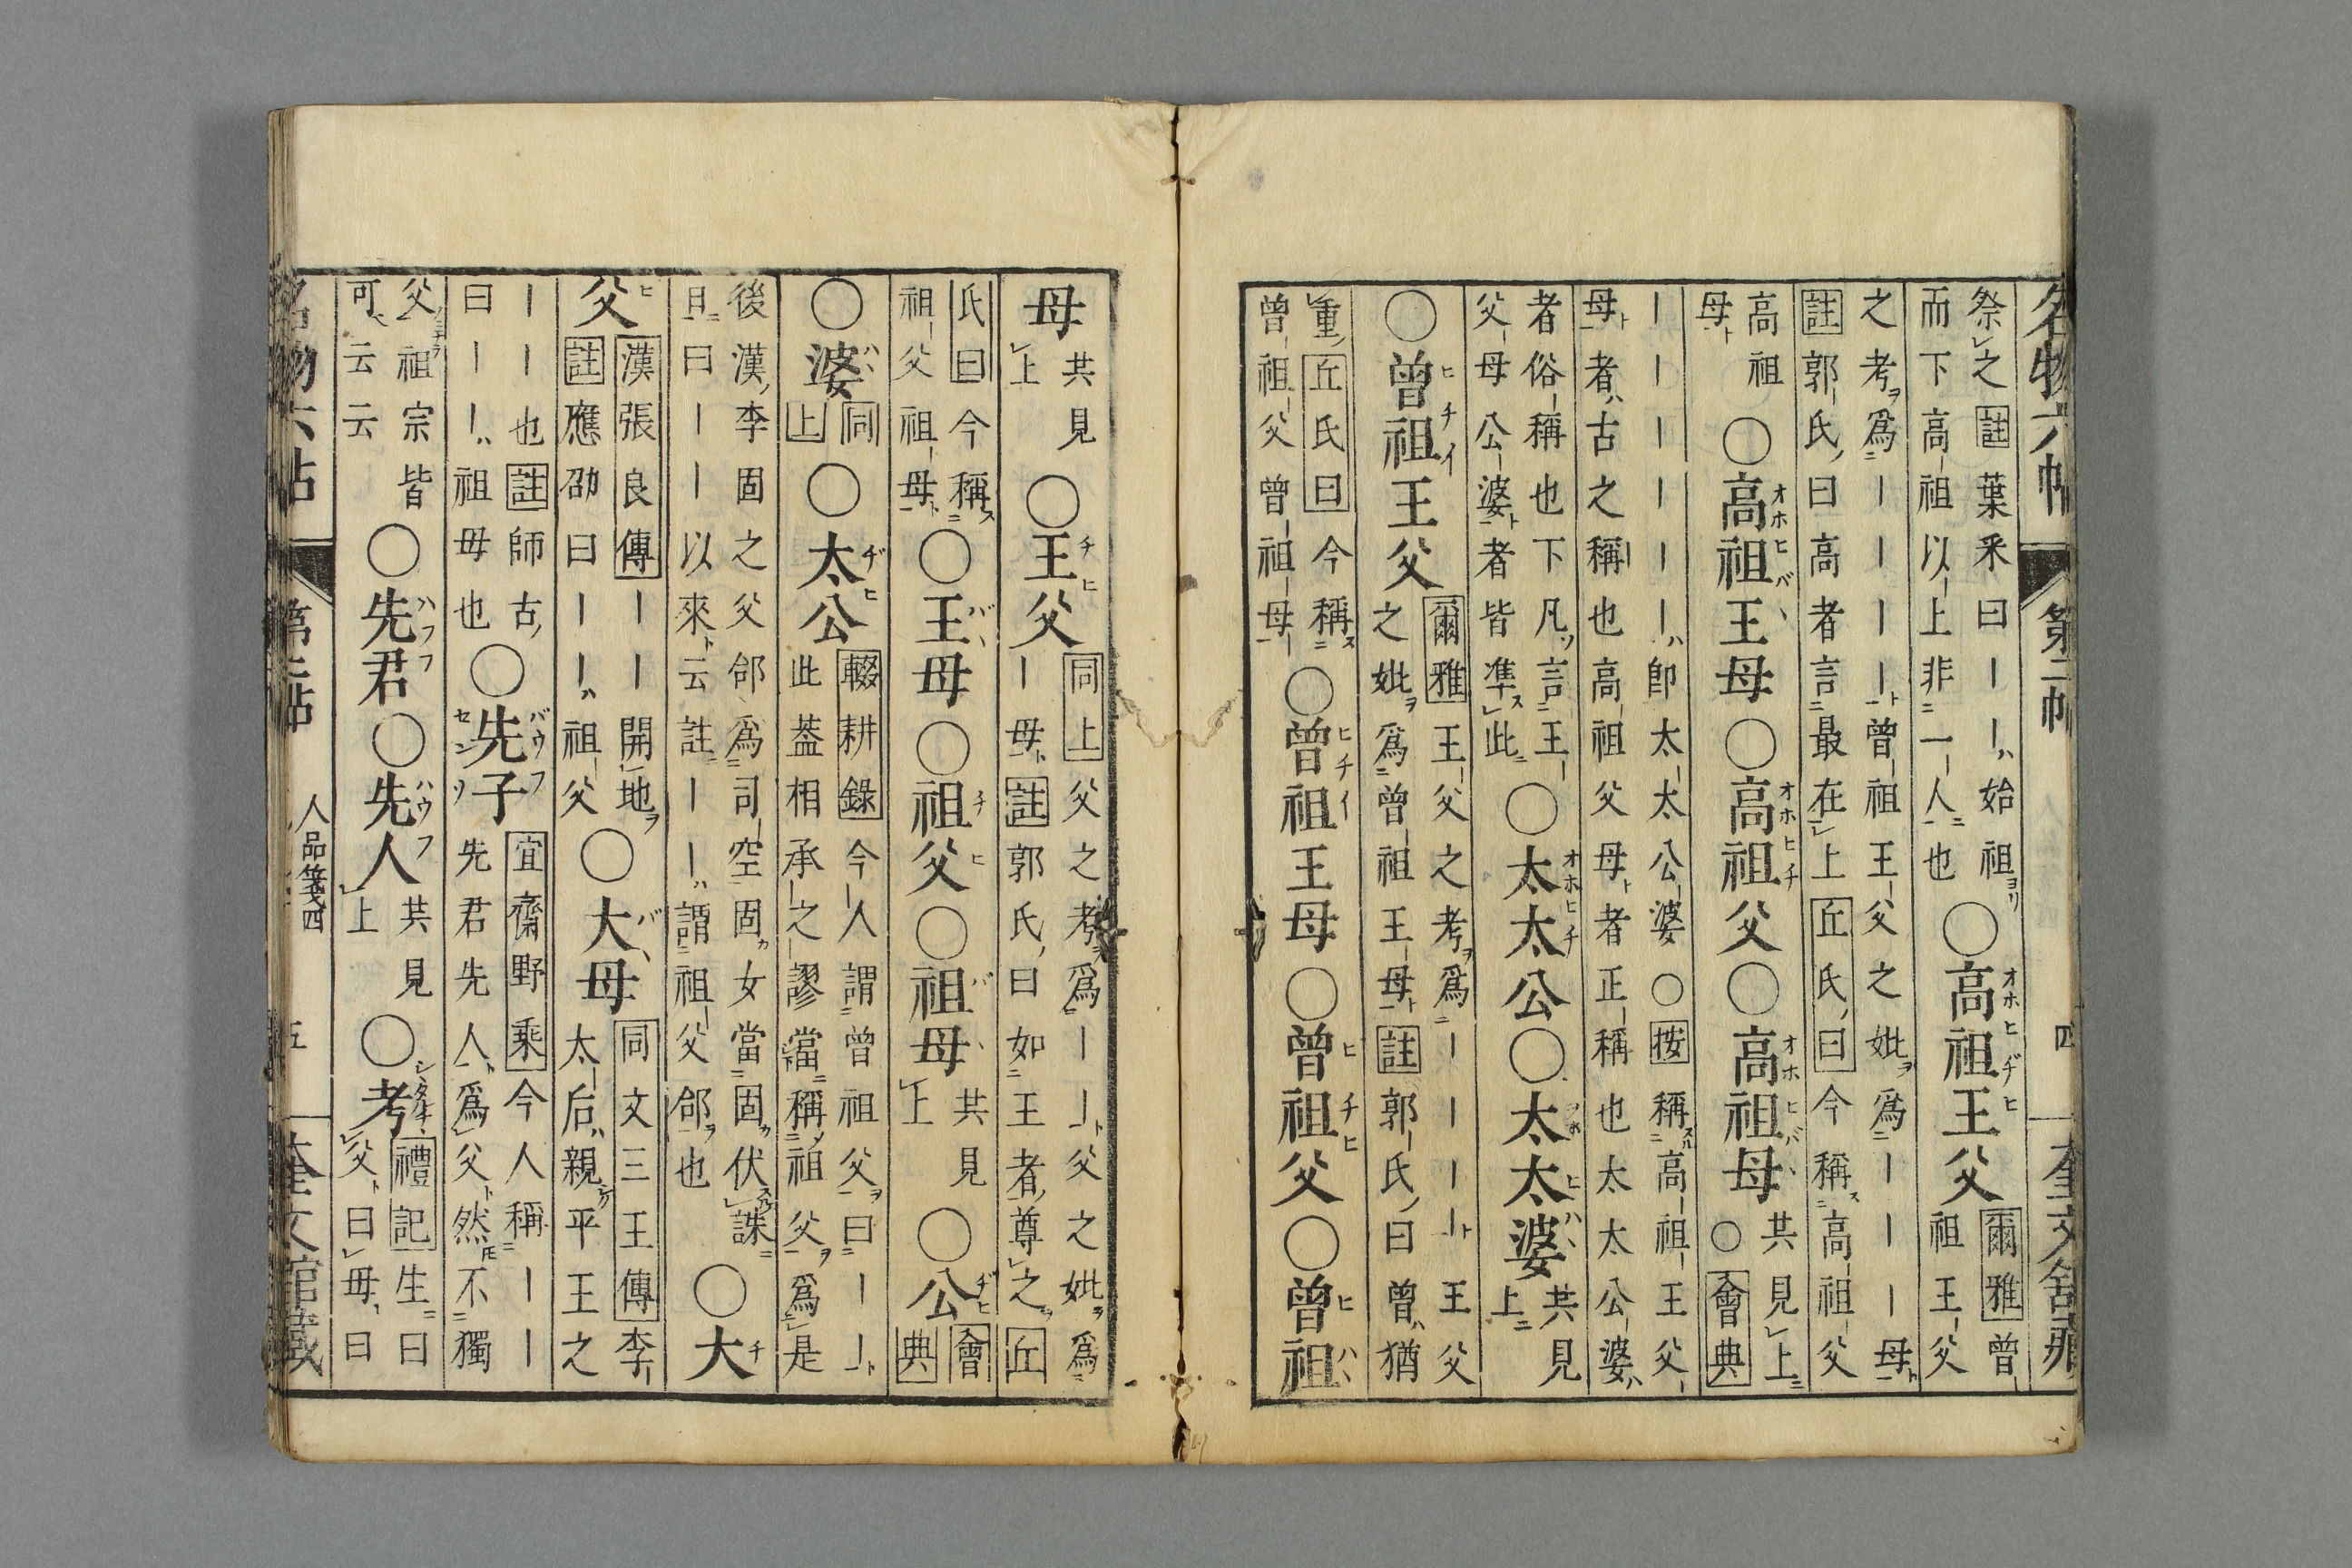 名物六帖 第二帖 四 奎文舘藏
祭之註葉釆曰｜｜始祖
而下高祖以上非一人也
○高祖王父
爾雅曾
祖王父
之考爲｜｜｜｜曾祖王父之妣爲｜｜｜母
註郭氏曰高者言最在上丘氏曰今稱高祖父
高祖
母
○高祖王母○高祖父○高祖母
共見上
○會典
｜｜｜｜｜｜卽太太公婆○按稱高祖王父
母者古之稱也高祖父母者正稱也太太公婆
者俗稱也下凡言王
父母公婆者皆準此
○太太公○太太婆
共見
上
○曾祖王父
爾雅王父之考爲｜｜｜｜王父
之妣爲曾祖王母註郭氏曰曾猶
重丘氏曰今稱
曾祖父曾祖母
○曾祖王母○曾祖父○曾祖
母
共見
上
○王父
同上父之考爲｜｜父之妣爲
｜母註郭氏曰如王者尊之丘
氏曰今稱
祖父祖母
○王母○祖父○祖母
共見
上
○公
會
典
○婆
同
上
○太公
輟耕錄今人謂曾祖父曰｜｜
此葢相承之謬當稱祖父爲是
後漢李固之父郃爲司空固女當固伏誅
且曰｜｜以來云註｜｜謂祖父郃也
○大
父
漢張良傳｜｜開地
註應劭曰｜｜祖父
○大母
同文三王傳李
太后親平王之
｜｜也註師古
曰｜｜祖母也
○先子
宜齋野乘今人稱｜｜
先君先人爲父然不獨
父祖宗皆
可云云
○先君○先人
共見
上
○考
禮記生曰
父曰母曰
名物六帖 第二帖 人品箋四 五 奎文舘藏